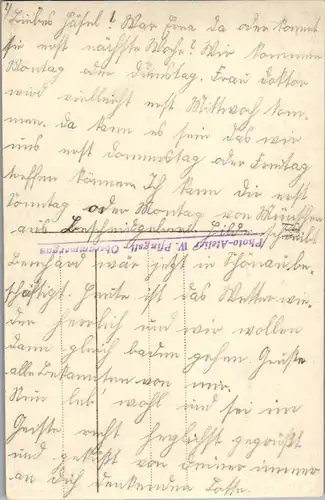 Liebes Häsel! War Frea da oder kommt
sie erst nächste Woche? Wir kommen
Montag oder Dienstag. Frau Doktor
wird vielleicht erst Mittwoch kom-
men. da kann es sein das wir
uns erst Donnerstag oder Freitag
treffen können. Ich kann dir erst
Sonntag oder Montag von München
aus Bescheid geben. Hilde schreibt
Photo-Atelier W. Pfingstl, Oberammergau
Bernhard wär jetzt in Schönau be-
schäftigt. Heute ist das Wetter wie-
der herrlich und wir wollen
dann gleich baden gehen. Grüße
alle Bekannten von mir.
Nun leb' wohl und sei im
Geiste recht herzlichst gegrüßt
und geküßt von deiner immer
an dich denkenden Lotte.